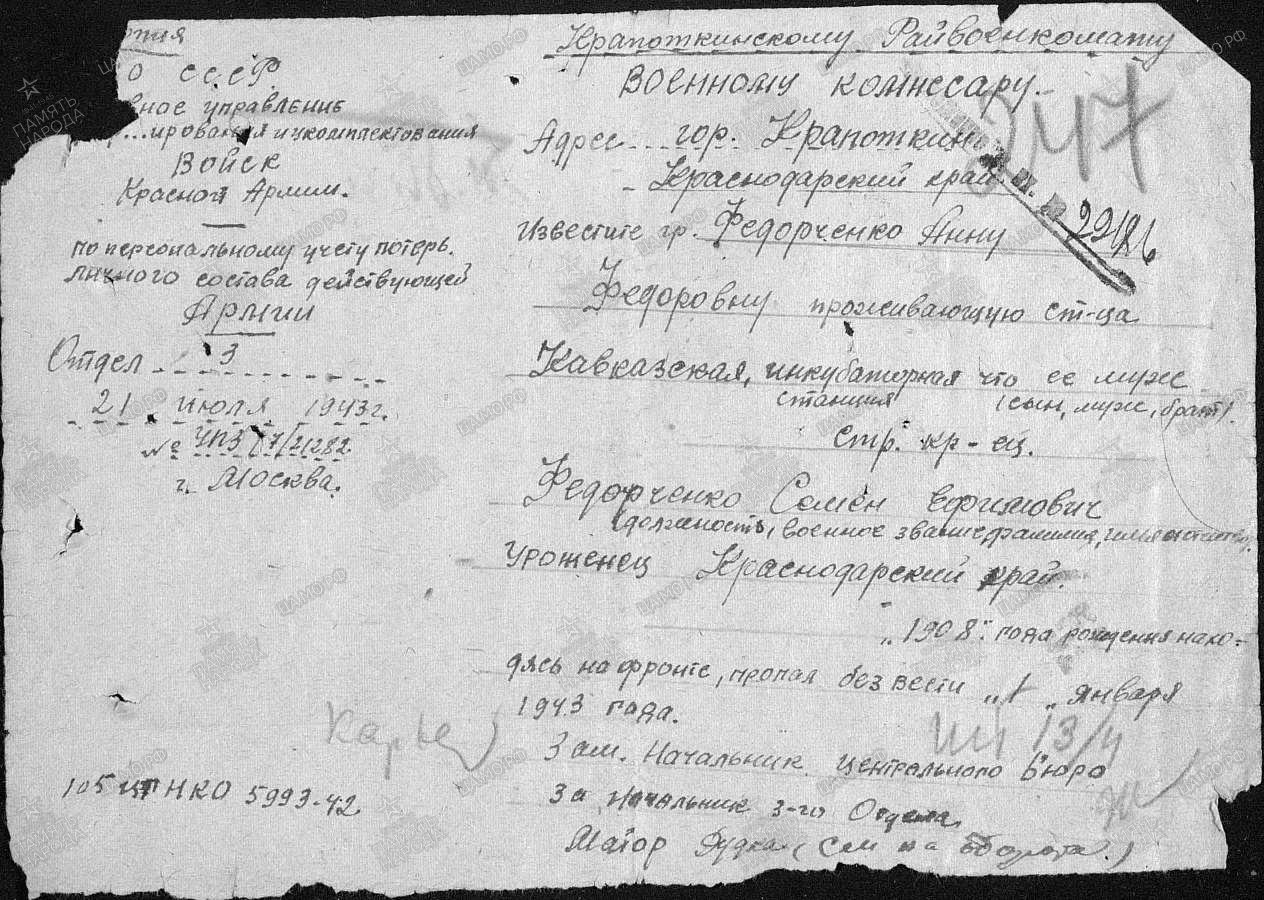 опия
О СССР
вное управление
...ирования и укомплектования
Войск
Красной Армии.
по персональному учету потерь.
личного состава действующей
Армии
Отдел 3
21 июля 1943 г.
№ УПЗ
г. Москва.
105 ЦП НКО 5993-42.
Крапоткинскому Райвоенкомату
Военному комиссару.
247
Адрес гор. Крапоткин
Краснодарский край
Известите гр. Федорченко Анну
Федоровну проживающую ст-ца
Кавказская, инкубаторная что ее муж
станция (сын, муж, брат).
стр. кр-ец.
Федорченко Семен Ефимович
(должность, военное звание, фамилия, имя
Уроженец Краснодарский край.
„1908" года рождения нахо-
дясь на фронте, пропал без вести „1" января
1943 года.
13/4
Зам. Начальник центрального Бюро
За Начальник 3-го Отдела
Маіор Дудка (См на обороте.)
ПАМЯТЬ НАРОДА
ЦАМО РФ